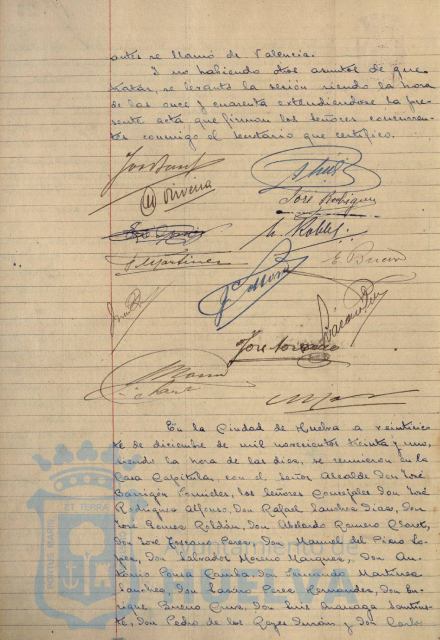 antes se llamó de Valencia.
Y no habiendo otros asuntos de que
tratar, se levantó la sesión siendo la hora
de las once y cuarenta extendiéndose la pre-
sente acta que firman los señores concurren-
tes conmigo el secretario que certifico.
M Rivera
José Rodriguez
M. Robles
J Martinez
E. Bueno
José
En la Ciudad de Huelva a veintisie-
te de diciembre de mil novecientos treinta y uno,
siendo la hora de las diez, se reunieron en la
Casa Capitular, con el Señor Alcalde Don José
Barrigón Fornieles, los Señores Concejales Don José
Rodriguez Alfonso, Don Rafael Sanchez Diaz, Don
José Gomez Roldán, Don Abelardo Romero Claret,
Don José Toscano Perez, Don Manuel del Pino Lo-
pez, Don Salvador Moreno Marquez, Don An-
tonio Pousa Camba, Don Fernando Martinez
Sanchez, Don Lazaro Perez Hernandez, Don En-
rique Bueno Cruz, Don Luis
Don Pedro de los Reyes Durán y Don Carlos